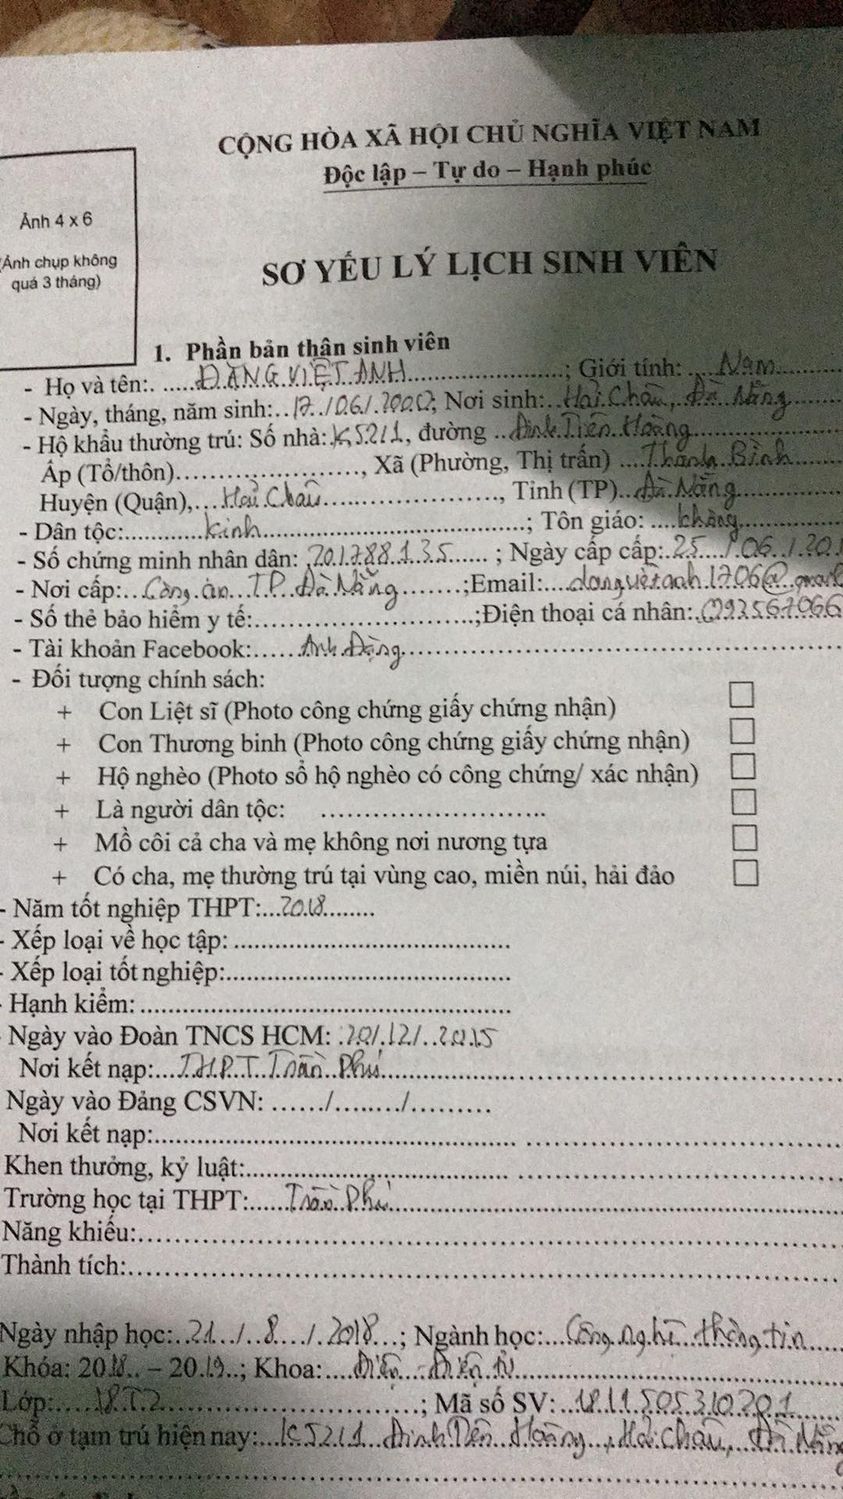 CỘNG HÒA XÃ HỘI CHỦ NGHĨA VIỆT NAM
Độc lập – Tự do – Hạnh phúc
Ảnh 4 x 6
(Ảnh chụp không
quá 3 tháng)
SƠ YẾU LÝ LỊCH SINH VIÊN
1. Phần bản thân sinh viên
- Họ và tên:. .....ĐẶNG VIỆT ANH..........; Giới tính: ....Nam..........
- Ngày, tháng, năm sinh:..17../06/.2000; Nơi sinh:..Hải Châu, Đà Nẵng.....
- Hộ khẩu thường trú: Số nhà: K52/1, đường ..Đinh Tiên Hoàng..........
Ấp (Tổ/thôn)...................., Xã (Phường, Thị trấn) ....Thanh Bình......
Huyện (Quận),...Hải Châu...................., Tỉnh (TP)..Đà Nẵng..........
- Dân tộc:..........kinh..............................; Tôn giáo: ....không..........
- Số chứng minh nhân dân: 201788135...... ; Ngày cấp cấp:.25..../.06../.201
- Nơi cấp:...Công.an...TP..Đà Nẵng.......;Email:....dangvietanh1706@.gmail
- Số thẻ bảo hiểm y tế:.........................;Điện thoại cá nhân:.093567066
- Tài khoản Facebook:......Anh.Đặng..............................
- Đối tượng chính sách:
+ Con Liệt sĩ (Photo công chứng giấy chứng nhận)
+ Con Thương binh (Photo công chứng giấy chứng nhận)
+ Hộ nghèo (Photo sổ hộ nghèo có công chứng/ xác nhận)
+ Là người dân tộc: ..........................
+ Mồ côi cả cha và mẹ không nơi nương tựa
+ Có cha, mẹ thường trú tại vùng cao, miền núi, hải đảo
- Năm tốt nghiệp THPT:...2018........
- Xếp loại về học tập: ........................................
- Xếp loại tốt nghiệp:........................................
- Hạnh kiểm: ..................................................
Ngày vào Đoàn TNCS HCM: .20/.12/..2015
Nơi kết nạp:...THPT.Trần..Phú..............................
Ngày vào Đảng CSVN: ....../......../.........
Nơi kết nạp:..................................................
Khen thưởng, kỷ luật:........................................
Trường học tại THPT:.....Trần.Phú..............................
Năng khiếu:..................................................
Thành tích:..................................................
Ngày nhập học:..21../..8..../.2018...; Ngành học:...Công.nghệ..thông.tin.....
Khóa: 2018.. – 2019..; Khoa:....Điện..-Điện tử....................
Lớp:.....18T2..............................; Mã số SV: ..1811505310201......
Chỗ ở tạm trú hiện nay:...K52/1...Đinh Tiên..Hoàng...,Hải Châu,..Đà Nẵng